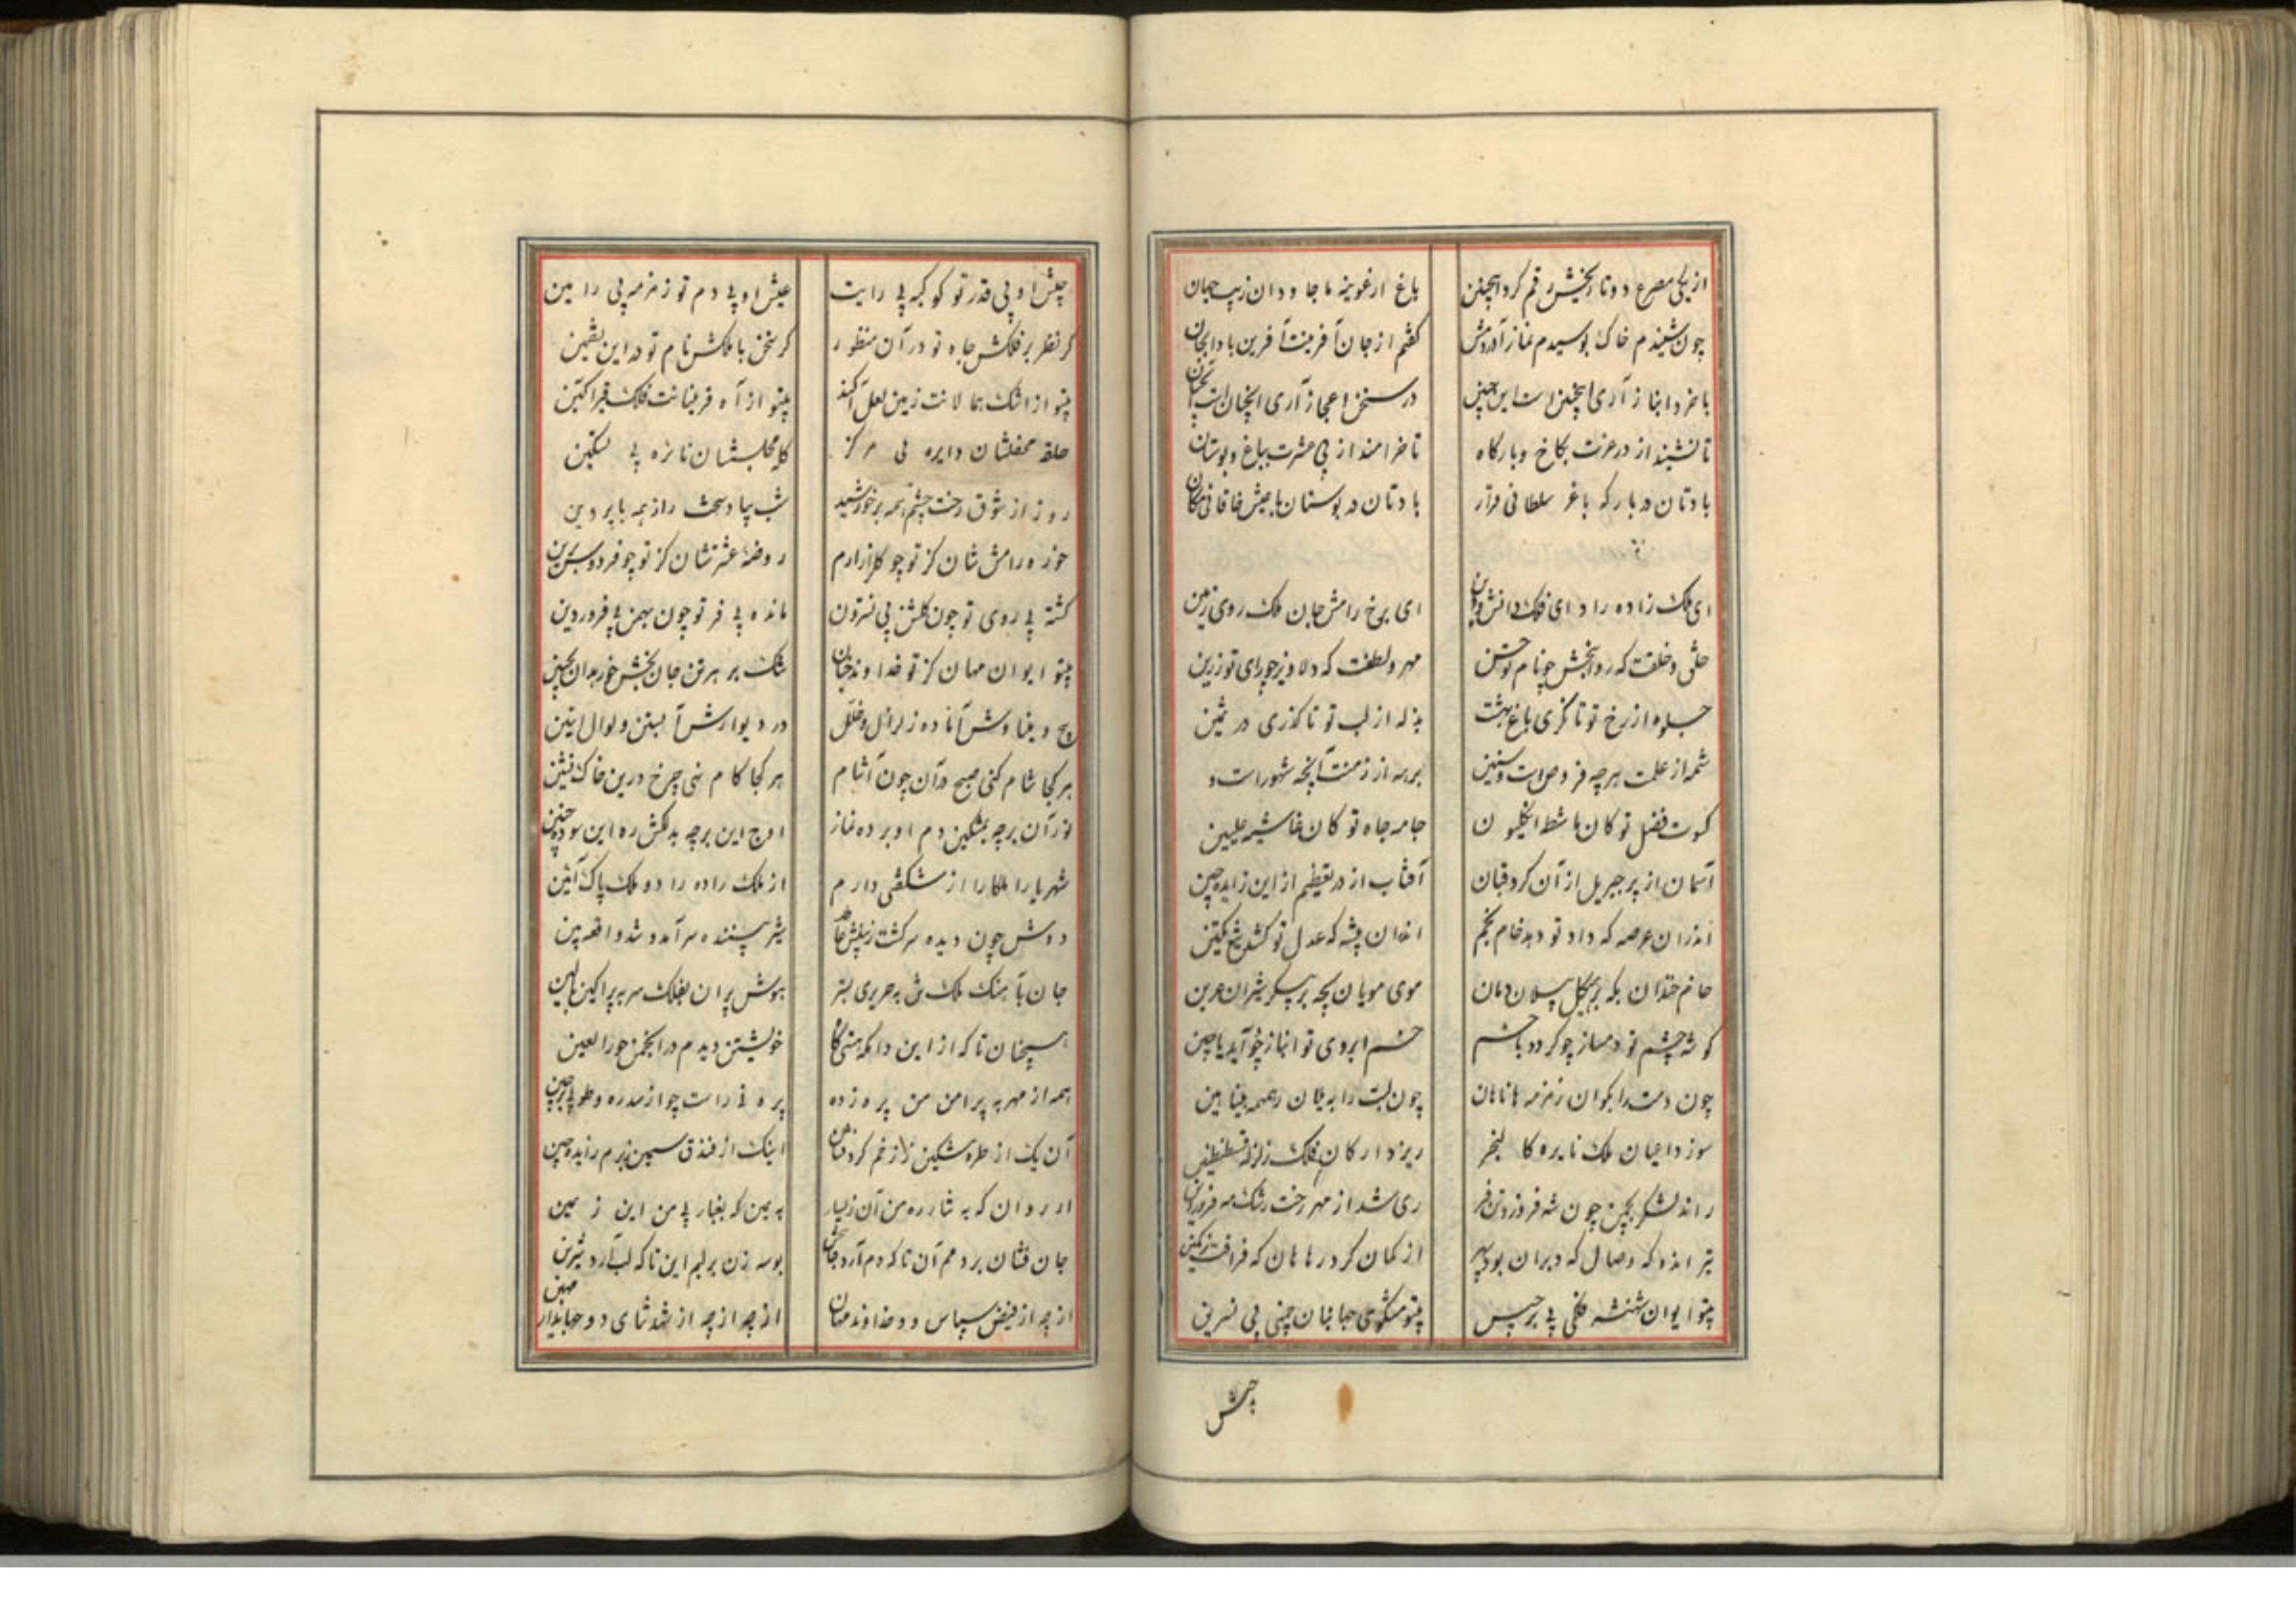 از یکی مصرع دو تاریخش رقم کرد اینچنین
باغ ارغونیه با جاودان زیب جهان
چون شنیدم خاک بوسیدم نماز آوردمش
گفتم از جان آفرینت آفرین بادا بجان
با خرد انباز آری اینچنین است این چنین
در سخن اعجاز آری آنچنان است آنچنان
تا نشیند از در عزت بکاخ و بارگاه
تا خرامند از پی عشرت بباغ و بوستان
بادتان در بارگه با فر سلطانی قرار
بادتان در بوستان با عیش خاقانی مکان
ای ملک زاده راد ای فلک دانش و
ای برخ رامش جان ملک روی زمین
خلق و خلقت که روانبخش چو نام
مهر و لطفت که دلاویز چو رای تو رزین
جلوه از رخ تو تا نگری باغ بهشت
بذله از لب تو تا گذری در ثمین
شمه از علمت هر چه
بهره از زمنت آنچه شهور است و
کسوت فضل تو کان ماشطه انگلیون
جامه جاه تو کان غاشیه علیین
آسمان از پر جبریل از آن کرد
آفتاب از در تعظیم از این
اندران عرصه که داد تو دهد خام بخم
اندان بیشه که عدل تو کشد تیغ
خانم خندان بکه بر هیکل پیلان دمان
موی مویان بچه بر پیکر شیران عرین
گوشه چشم تو دمساز چو گردد با خشم
خسم ابروی تو انباز چو آید با چین
چون دمت را بکوان زمزمه هانا هان
چون لبت را به یلان همهمه هینا هین
سوزد اعیان ملک نایره کالفجر
ریزد ارکان فلک زلزله
راند لشکر بچمن چون شه فروردین فر
ری شد از مهر رخت رشک مه فروردین
تیر اندو که وصال که دبران بود
از کمان کرد رها هان که فراقت
بیتو ایوان شهنشه فلکی بی برجیس
بیتو مشکوی جهانبان چمنی بی نسرین
جیش
جیش او بی قدر تو کوکبه بی رایت
عیش او بی دم تو زمزمه بی رامین
گر نظر بر فلکش جاه تو در آن منظور
گر سخن با ملکش نام تو در این تضمین
بیتو از اشک همالانت زمین لعل آکند
بیتو از آه قرینانت فلک قیر آگین
حلقه محفلشان دایره بی مرکز
کله مجلسشان نایره بی تسکین
روز از شوق رخت چشم همه بر خورشید
شب بیاد سخنت راز همه با پروین
حوزه رامششان کز تو چو گلزار ارم
روضه عشرتشان کز تو چو فردوس برین
گشته بی روی تو چون گلشن بی نسترون
مانده بی فر تو چون بهمن بی فروردین
بیتو ایوان مهان کز تو خداوند جهان
تنگ بر هر تن جان بخش
و بنیادش آماده زلزال و خلل
در دیوارش آبستن ولوال
هر کجا شام کنی صبح در آن چون آشام
هر کجا گام نهی چرخ درین خاک نشین
نوز آن برچه بمشکین دم او برده نماز
اوج این برچه بدلکش ره این سوده جبین
شهریارا ملکا را از شکفتی دارم
از ملک زاده راد و ملک پاک آئین
دوش چون دیده سرگشت
سر آمد و شد واقعه بین
جان با هنگ ملک تن به حریری بستر
هوش پران بفلک سر به پرآگین بالین
همچنان تا که از این دامگه
خویشتن دیدم در انجمن حورالعین
همه از مهر به پیرامن من پره زده
پره نی راست چو از سدره و طوبی
آن یک از طره مشکین
اینک از فندق سیمین
از روان که به نثار ره من آن ز یسار
به یمین که بغبار پی من این ز یمین
جان فشان بر دمم آن تا که دم آرد
بوسه زن بر لبم این تا که لب آرد شیرین
از چه از فیض سپاس دو خداوند مهان
از چه از چه از شهد ثنای دو جهاندار مهین